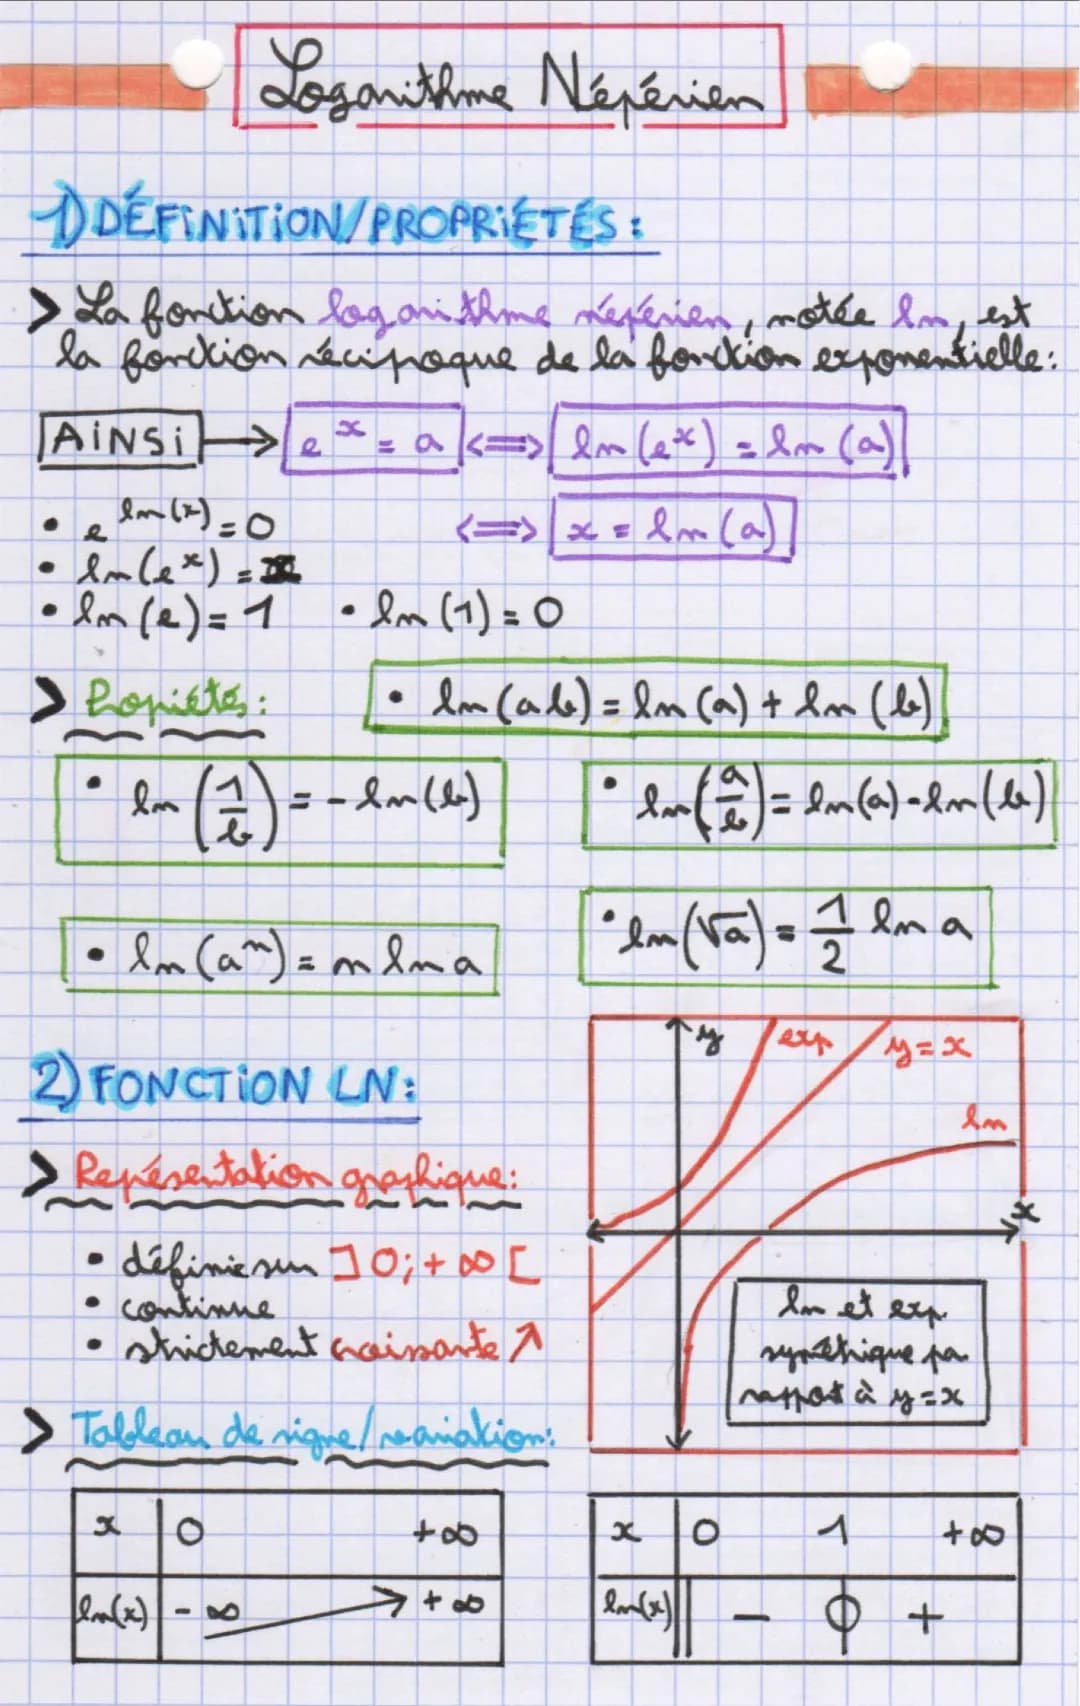 Logarithme Népérien
1) DÉFINITION/PROPRIÉTÉS :
> La fonction logarithme népérien, notée ln, est
la fonction réciproque de la fonction exponentielle :
AINSI → e^x = a <=> ln(e^x) = ln(a)
• e^ln(x) = 0 <=> x = ln(a)
• ln(e^x) = x
• ln(e) = 1 • ln(1) = 0
> Propiétés : • ln(ab) = ln(a) + ln(b)
• ln(1/b) = - ln(b) • ln(a/b) = ln(a) - ln(b)
• ln(a^n) = n ln a • ln(√a) = 1/2 ln a
2) FONCTION LN :
> Représentation graphique :
• définie sur ]0; + ∞ [
• continue
• strictement croissante ↗
y exp y = x
ln
x
ln et exp
symétrique par
rapport à y = x
> Tableau de signe/variation :
x 0 +∞
ln(x) - ∞ + ∞
x 0 1 +∞
ln(x) - 0 +